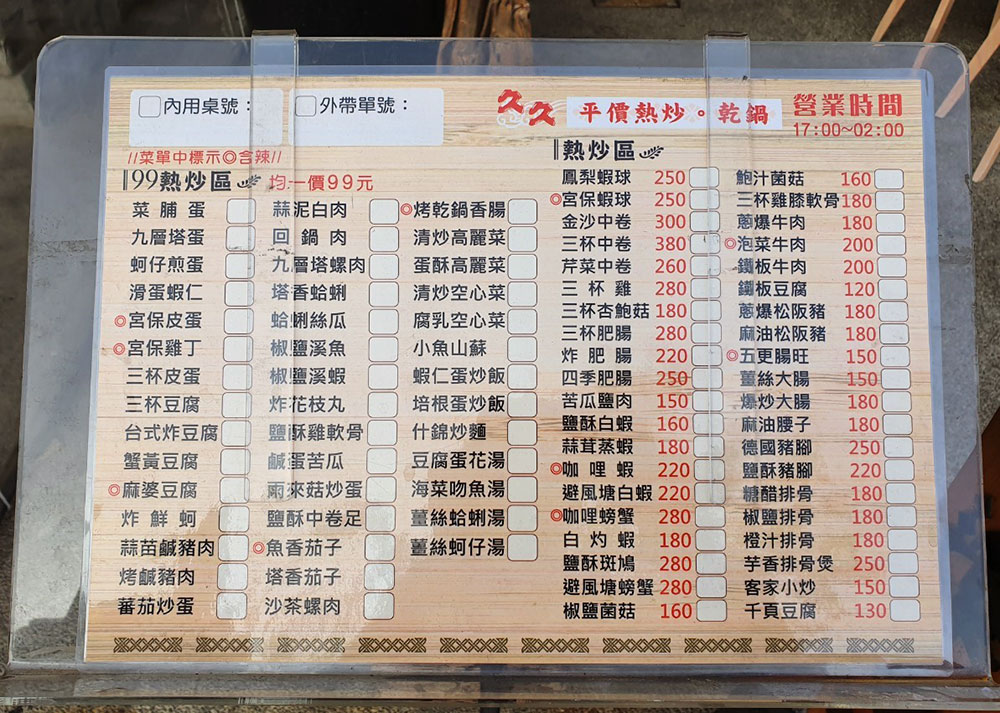 □內用桌號：
□外帶單號：
久久 平價熱炒。乾鍋
營業時間
17:00~02:00
//菜單中標示◎含辣//
99熱炒區 均一價99元
菜脯蛋
九層塔蛋
蚵仔煎蛋
滑蛋蝦仁
◎宮保皮蛋
◎宮保雞丁
三杯皮蛋
三杯豆腐
台式炸豆腐
蟹黃豆腐
◎麻婆豆腐
炸鮮蚵
蒜苗鹹豬肉
烤鹹豬肉
蕃茄炒蛋
蒜泥白肉
回鍋肉
九層塔螺肉
塔香蛤蜊
蛤蜊絲瓜
椒鹽溪魚
椒鹽溪蝦
炸花枝丸
鹽酥雞軟骨
鹹蛋苦瓜
雨來菇炒蛋
鹽酥中卷足
◎魚香茄子
塔香茄子
沙茶螺肉
◎烤乾鍋香腸
清炒高麗菜
蛋酥高麗菜
清炒空心菜
腐乳空心菜
小魚山蘇
蝦仁蛋炒飯
培根蛋炒飯
什錦炒麵
豆腐蛋花湯
海菜吻魚湯
薑絲蛤蜊湯
薑絲蚵仔湯
熱炒區
鳳梨蝦球 250
◎宮保蝦球 250
金沙中卷 300
三杯中卷 380
芹菜中卷 260
三杯雞 280
三杯杏鮑菇 180
三杯肥腸 280
炸肥腸 220
四季肥腸 250
苦瓜鹽肉 150
鹽酥白蝦 160
蒜茸蒸蝦 180
◎咖哩蝦 220
避風塘白蝦 220
◎咖哩螃蟹 280
白灼蝦 180
鹽酥斑鳩 280
避風塘螃蟹 280
椒鹽菌菇 160
鮑汁菌菇 160
三杯雞膝軟骨 180
蔥爆牛肉 180
◎泡菜牛肉 200
鐵板牛肉 200
鐵板豆腐 120
蔥爆松阪豬 180
麻油松阪豬 180
◎五更腸旺 150
薑絲大腸 150
爆炒大腸 180
麻油腰子 180
德國豬腳 250
鹽酥豬腳 220
糖醋排骨 180
椒鹽排骨 180
橙汁排骨 180
芋香排骨煲 250
客家小炒 150
千頁豆腐 130